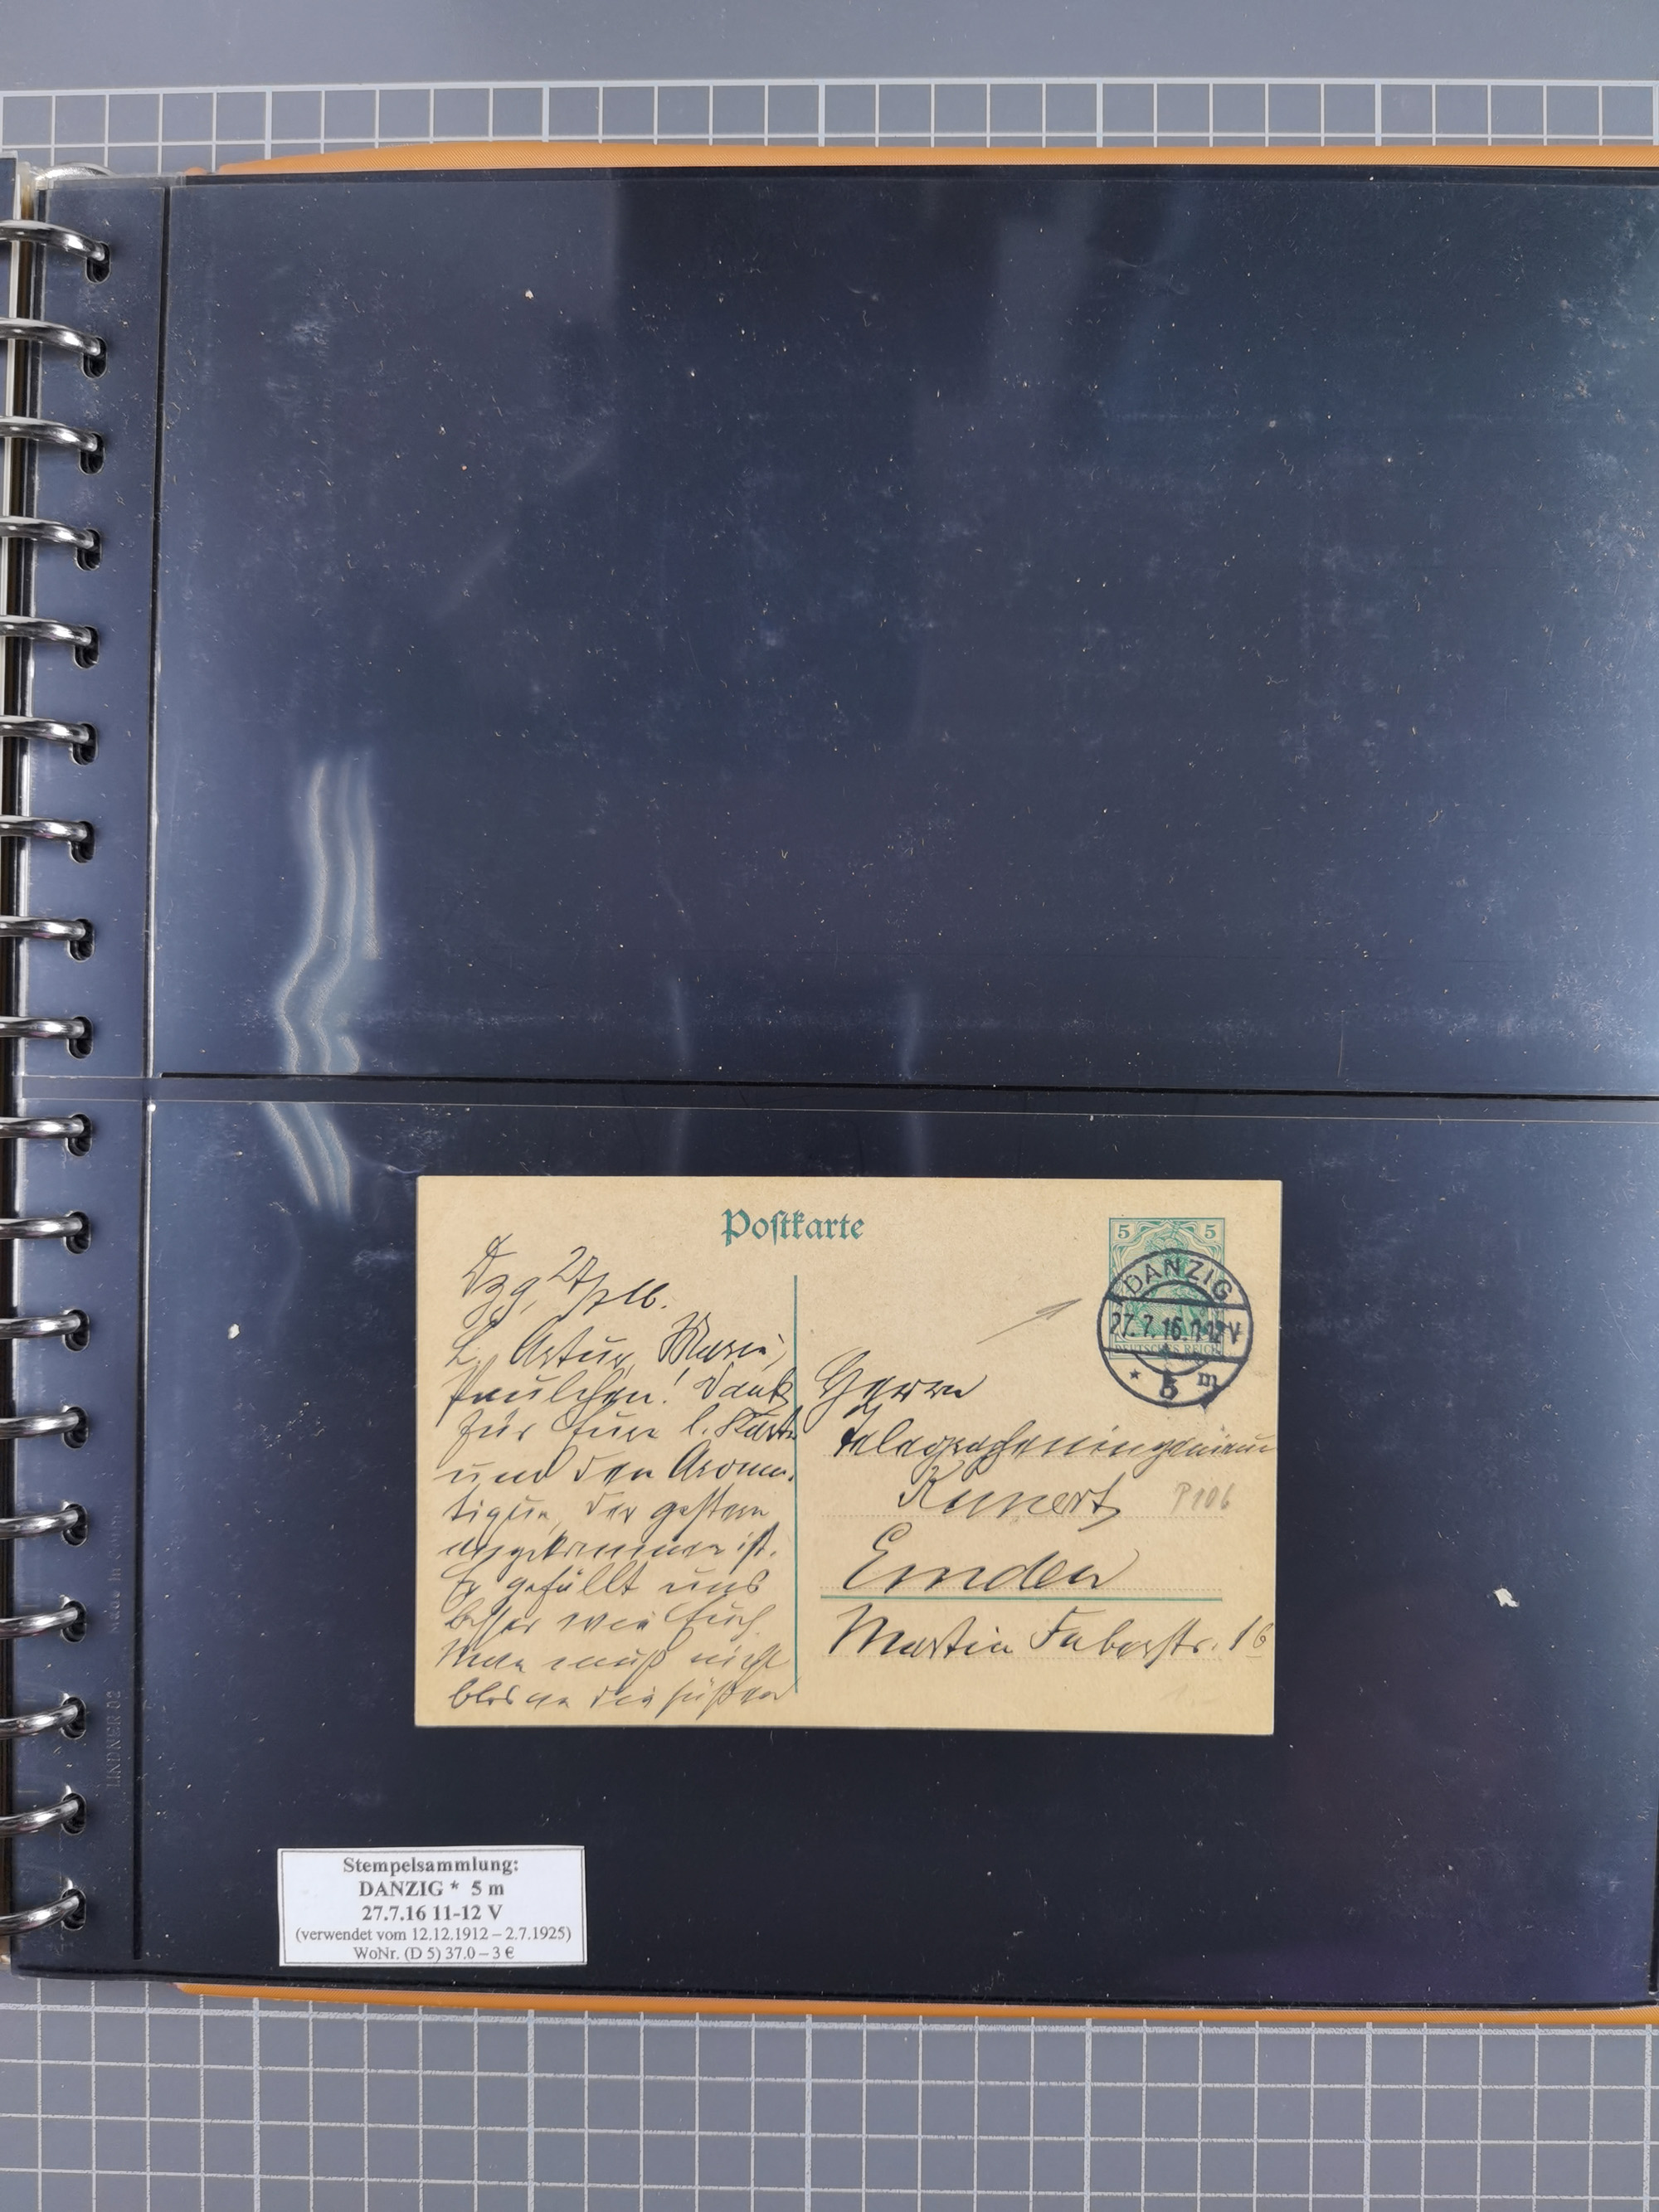 Postkarte
5 5
DANZIG
27.7.16.11-12V
DEUTSCHES REICH
* 5 m
Dzg, 27/7 16.
L. Artur, Marie,
Paulchen! Dank
für Eure l. Karte
und den
der gestern
angekommen ist.
Er gefällt uns
besser wie Euch.
Man muß nicht
blos an die süßen
Herrn
Telegrapheningenieur
Kunert
P 106
Emden
Martin Faberstr. 16
LINDNER 02 Made in Germany
Stempelsammlung:
DANZIG * 5 m
27.7.16 11-12 V
(verwendet vom 12.12.1912 – 2.7.1925)
WoNr. (D 5) 37.0 – 3 €